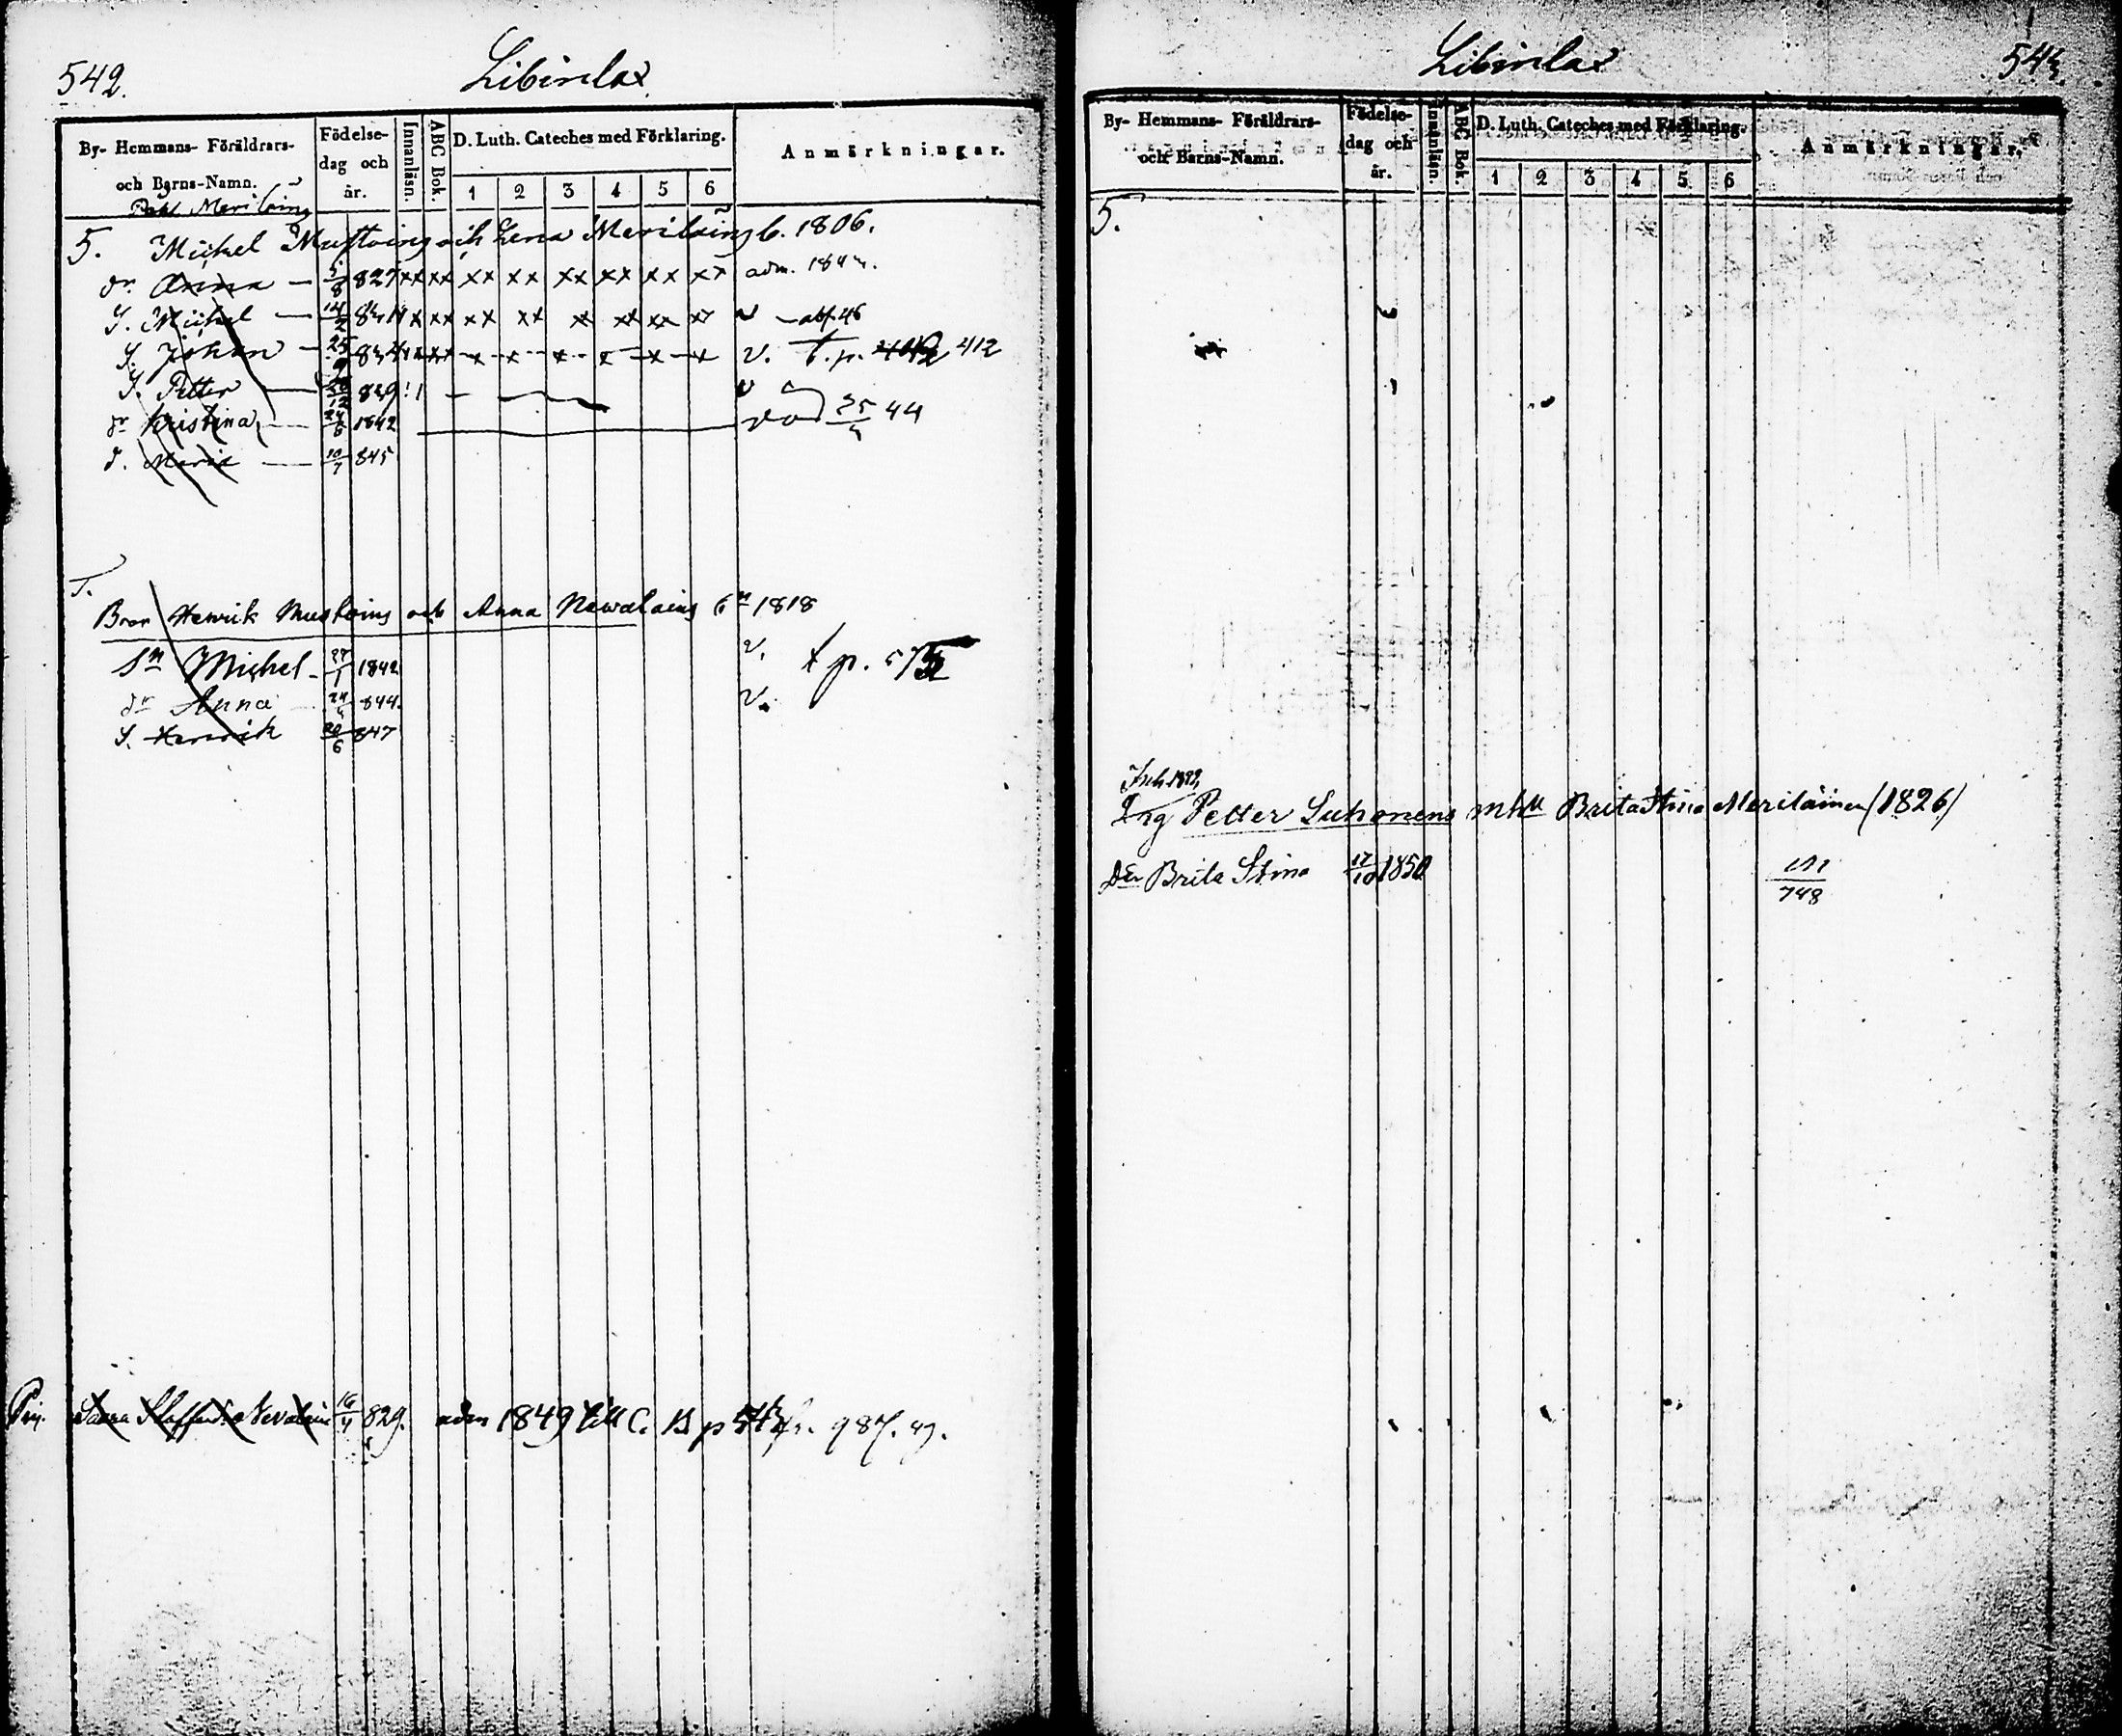 542.
Libirilax
By- Hemmans- Föräldrars- och Barns-Namn.
Födelse- dag och år.
Innanläsn.
ABC Bok.
D. Luth. Cateches med Förklaring.
1 2 3 4 5 6
Anmärkningar.
Pahl Meriläing
5. Michel Mustoing och Lena Meriläing b. 1806.
dr. Anna — 5/8 827 xx xx xx xx xx xx xx xx adm. 1843.
S. Michel — 14/2 831 x xx xx xx xx xx xx xx v — abf. 46
S. Johan — 25/9 834 v. T. p. 412
S. Petter — 12 839 v
dr Kristina — 24/6 1842 död 25/4 44
d. Maria — 10/7 845
T.
Bror Henrik Mustoing och Anna Newalaing 6n 1818
Sn Michel - 27/1 1842 v. t p. 575
dr Anna 24/4 844. v.
S. Henrik 20/6 847
Pig. Saara Staffansd. Nevalain 16/4 829. adm 1849 till C. B p 543 fr. 987. 49.
Libirilax
543.
By- Hemmans- Föräldrars- och Barns-Namn.
Födelse- dag och år.
Innanläsn.
ABC Bok.
D. Luth. Cateches med Förklaring.
1 2 3 4 5 6
Anmärkningar.
5.
Inh.
Ing Petter Suhonens m hu Brita Stina Meriläinen (1826)
Dr Brita Stina 17/10 1850
748